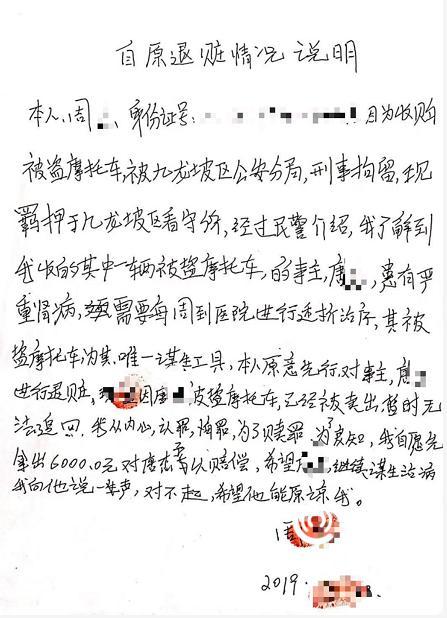 自原退赃情况说明
本人:周 、身份证号: 因为收购
被盗摩托车,被九龙坡区公安分局,刑事拘留,现
羁押于九龙坡区看守所,经过民警介绍,我了解到
我收的其中一辆被盗摩托车,的事主,唐 ,患有严
重肾病,需要每周到医院进行透折治疗,其被
盗摩托车为其,唯一谋生工具,本人原意先行,对事主,唐
进行退赃, 因唐 被盗摩托车,已经被卖出,暂时无
法追回.我从内心,认罪,悔罪,为了赎罪.为了良知,我自愿先
拿出6000.0元对唐 予以赔偿,希望 ,继续谋生治病
我向他说一声,对不起,希望他能原谅我。
周
2019.